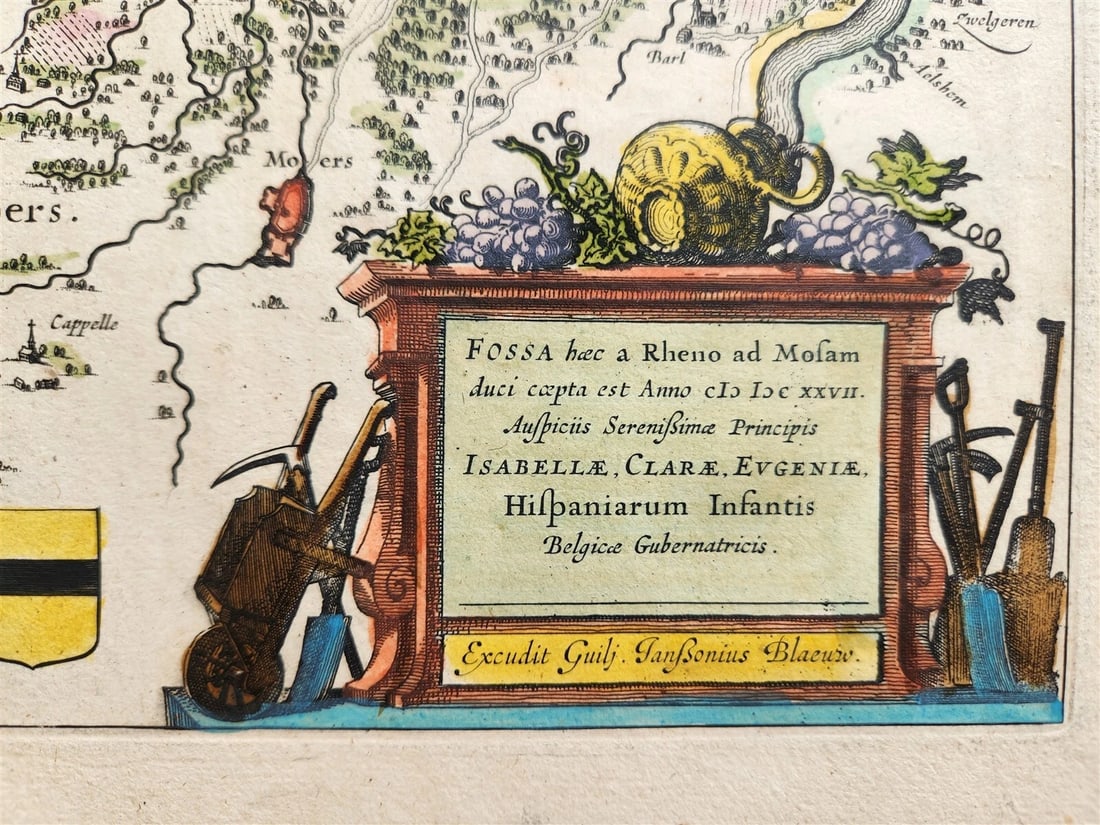 Zwelgeren
Barl
Aelshom
Moers
ers.
Cappelle
FOSSA hæc a Rheno ad Moſam
duci cœpta est Anno cIↄ Iↄc XXVII.
Auſpiciis Sereniſsimæ Principis
ISABELLÆ, CLARÆ, EVGENIÆ,
Hiſpaniarum Infantis
Belgicæ Gubernatricis.
Excudit Guilj. Ianſsonius Blaeuw.